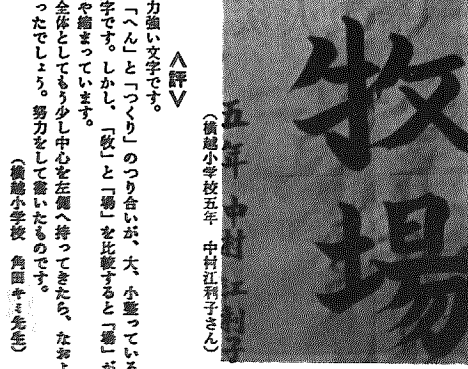 牧場
五年 中村江利子
（横越小学校五年 中村江利子さん）
＜評＞
力強い文字です。
「へん」と「つくり」のつり合いが、大、小整っている
字です。しかし、「牧」と「場」を比較すると「場」が
や縮まっています。
全体としてもう少し中心を左側へ持ってきたら、なおよ
ったでしょう。努力をして書いたものです。
（横越小学校 角田キミ先生）